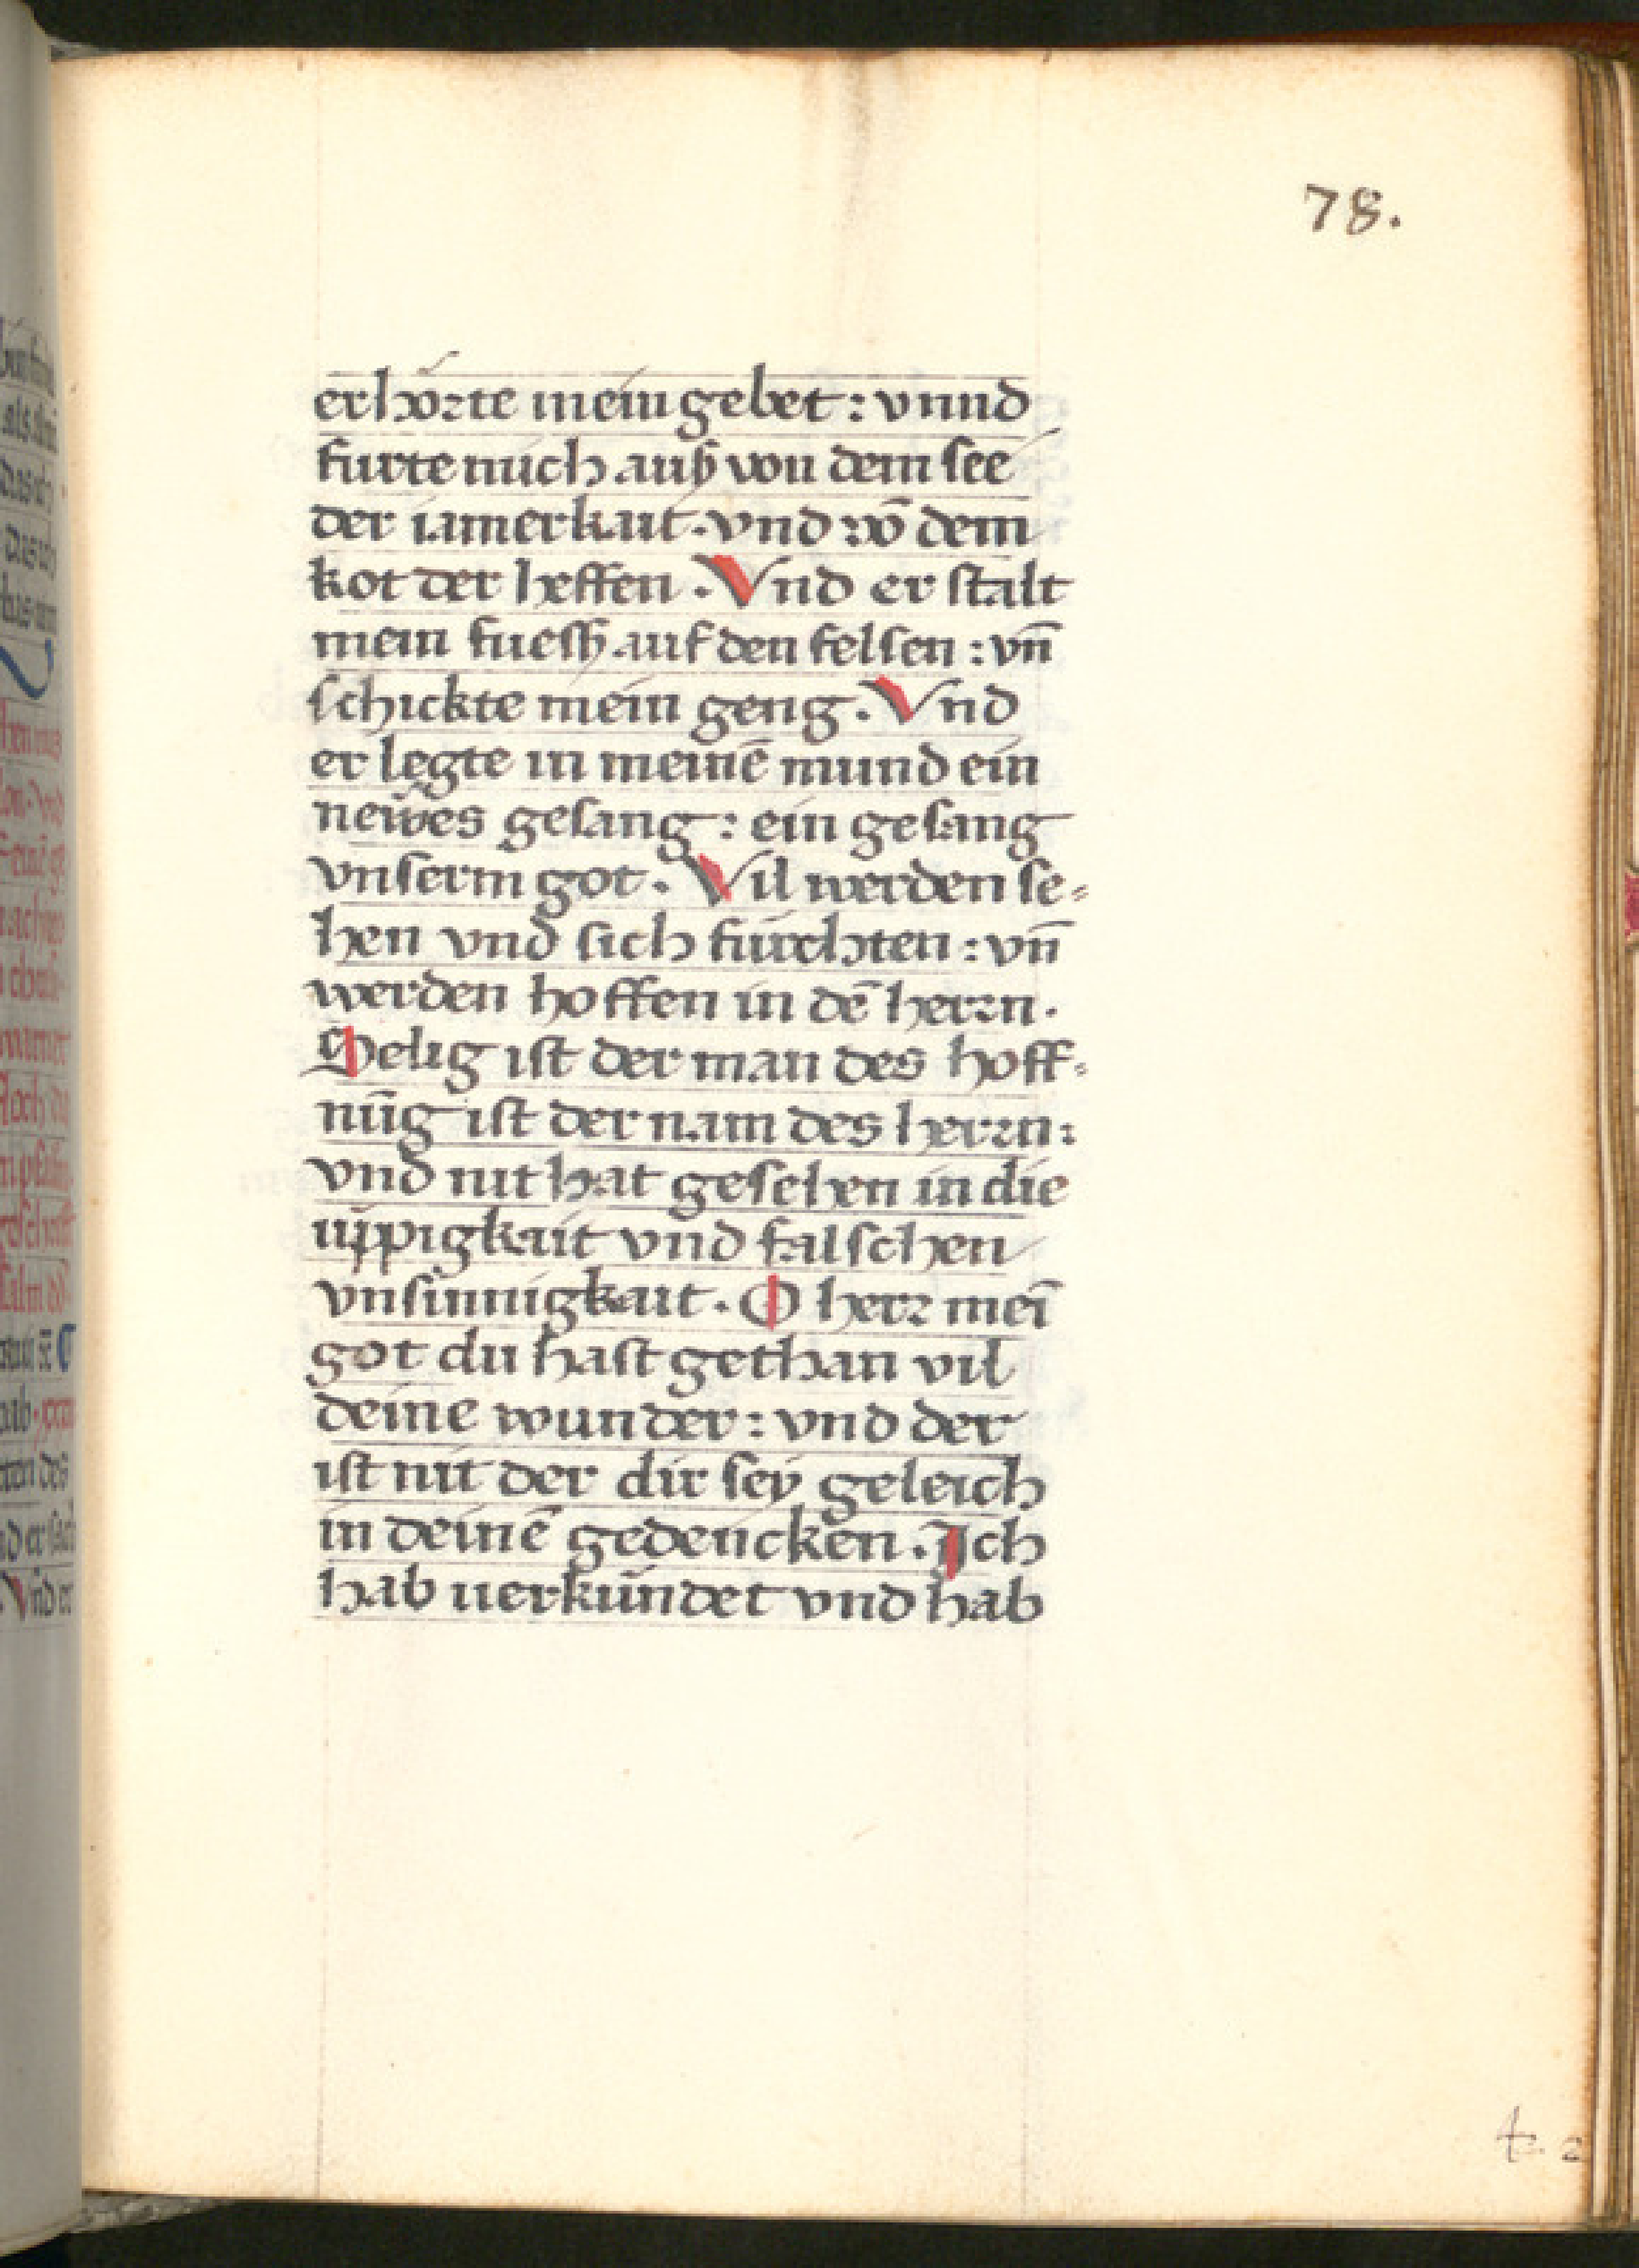 78.
erhörte mein gebet : vnnd
furte mich auß von dem see
der iamerkait. vnd vō dem
kot der heffen . Vnd er stalt
mein fuessz auf den felsen : vn̄
schickte mein geng . Vnd
er legte in meinē mund ein
newes gesang : ein gesang
vnserm got . Vil werden se-
hen vnd sich fürchten : vn̄
werden hoffen in dē herrn .
Selig ist der man des hoff-
nūg ist der nam des herrn :
vnd nit hat gesehen in die
üppigkait vnd falschen
vnsinnigkait . O herr mei̅
got du hast gethan vil
deine wunder : vnd der
ist nit der dir sey geleich
in deinē gedencken . Ich
hab uerkündet vnd hab